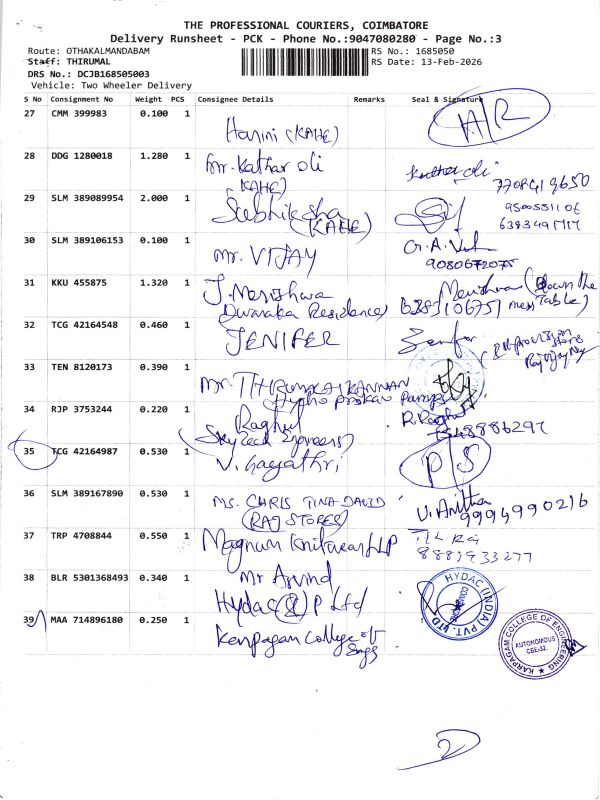 THE PROFESSIONAL COURIERS, COIMBATORE
Delivery Runsheet - PCK - Phone No.:9047080280 - Page No.:3
Route: OTHAKALMANDABAM RS No.: 1685050
Staff: THIRUMAL RS Date: 13-Feb-2026
DRS No.: DCJB168505003
Vehicle: Two Wheeler Delivery
S No Consignment No Weight PCS Consignee Details Remarks Seal & Signature
27 CMM 399983 0.100 1 A/R
Harini (KAHE)
28 DDG 1280018 1.280 1 Mr. Kathar oli Kathar oli
(KAHE) 7708419650
29 SLM 389089954 2.000 1 Subhiksha 9500551106
(KAHE) 6383491717
30 SLM 389106153 0.100 1
Mr. VIJAY 9080672075
31 KKU 455875 1.320 1 J. Merishwa
Dwaraka Residence)
32 TCG 42164548 0.460 1 JENIFER
33 TEN 8120173 0.390 1
Mr. THIRUMALAIKANNAN
34 RJP 3753244 0.220 1 Raghul
35 TCG 42164987 0.530 1 V. Gayathri P/S
36 SLM 389167890 0.530 1
MS. CHRIS TINA DAVID V. Anitha
(RAJ STORES) 9994990216
37 TRP 4708844 0.550 1 Magnum LLP
38 BLR 5301368493 0.340 1 Mr Arvind
Hydac (I) P Ltd
HYDAC (INDIA) PVT. LTD
39 MAA 714896180 0.250 1
Karpagam College of
Engg
KARPAGAM COLLEGE OF ENGINEERING
AUTONOMOUS
CBE-32
2